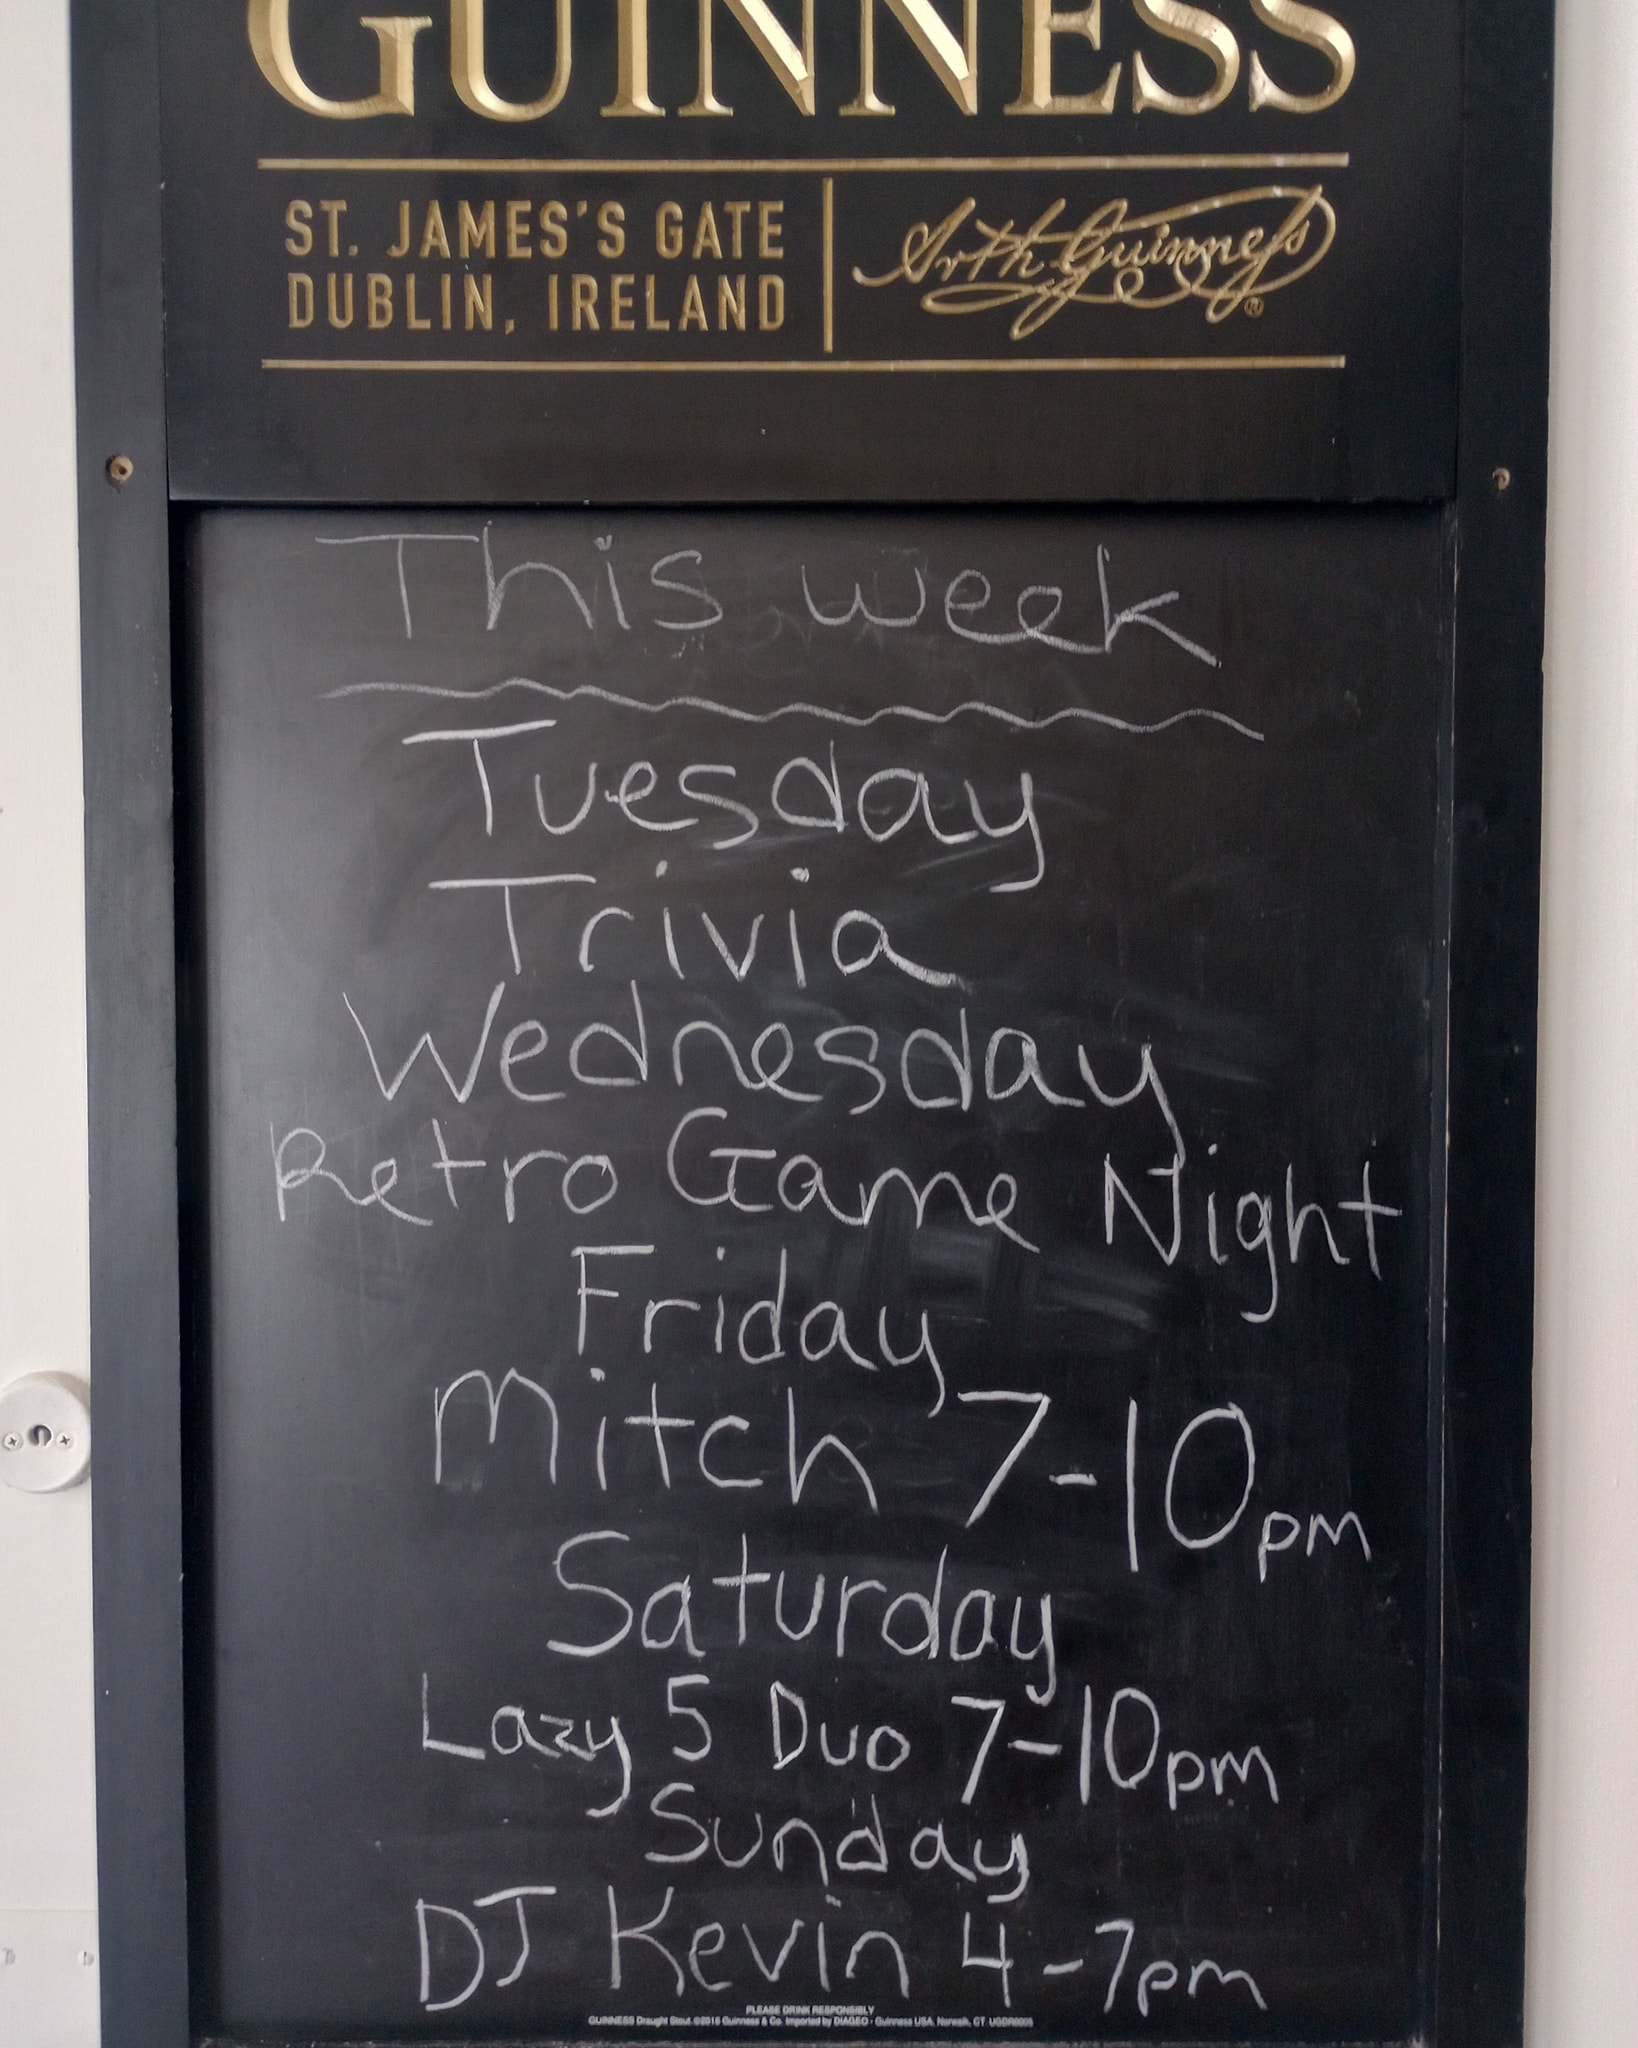 GUINNESS
ST. JAMES'S GATE
DUBLIN, IRELAND
Arth Guinness ®
This week
Tuesday
Trivia
Wednesday
Retro Game Night
Friday
Mitch 7-10pm
Saturday
Lazy 5 Duo 7-10pm
Sunday
DJ Kevin 4-7pm
PLEASE DRINK RESPONSIBLY
GUINNESS Draught Stout. ©2016 Guinness & Co. Imported by DIAGEO - Guinness USA, Norwalk, CT.